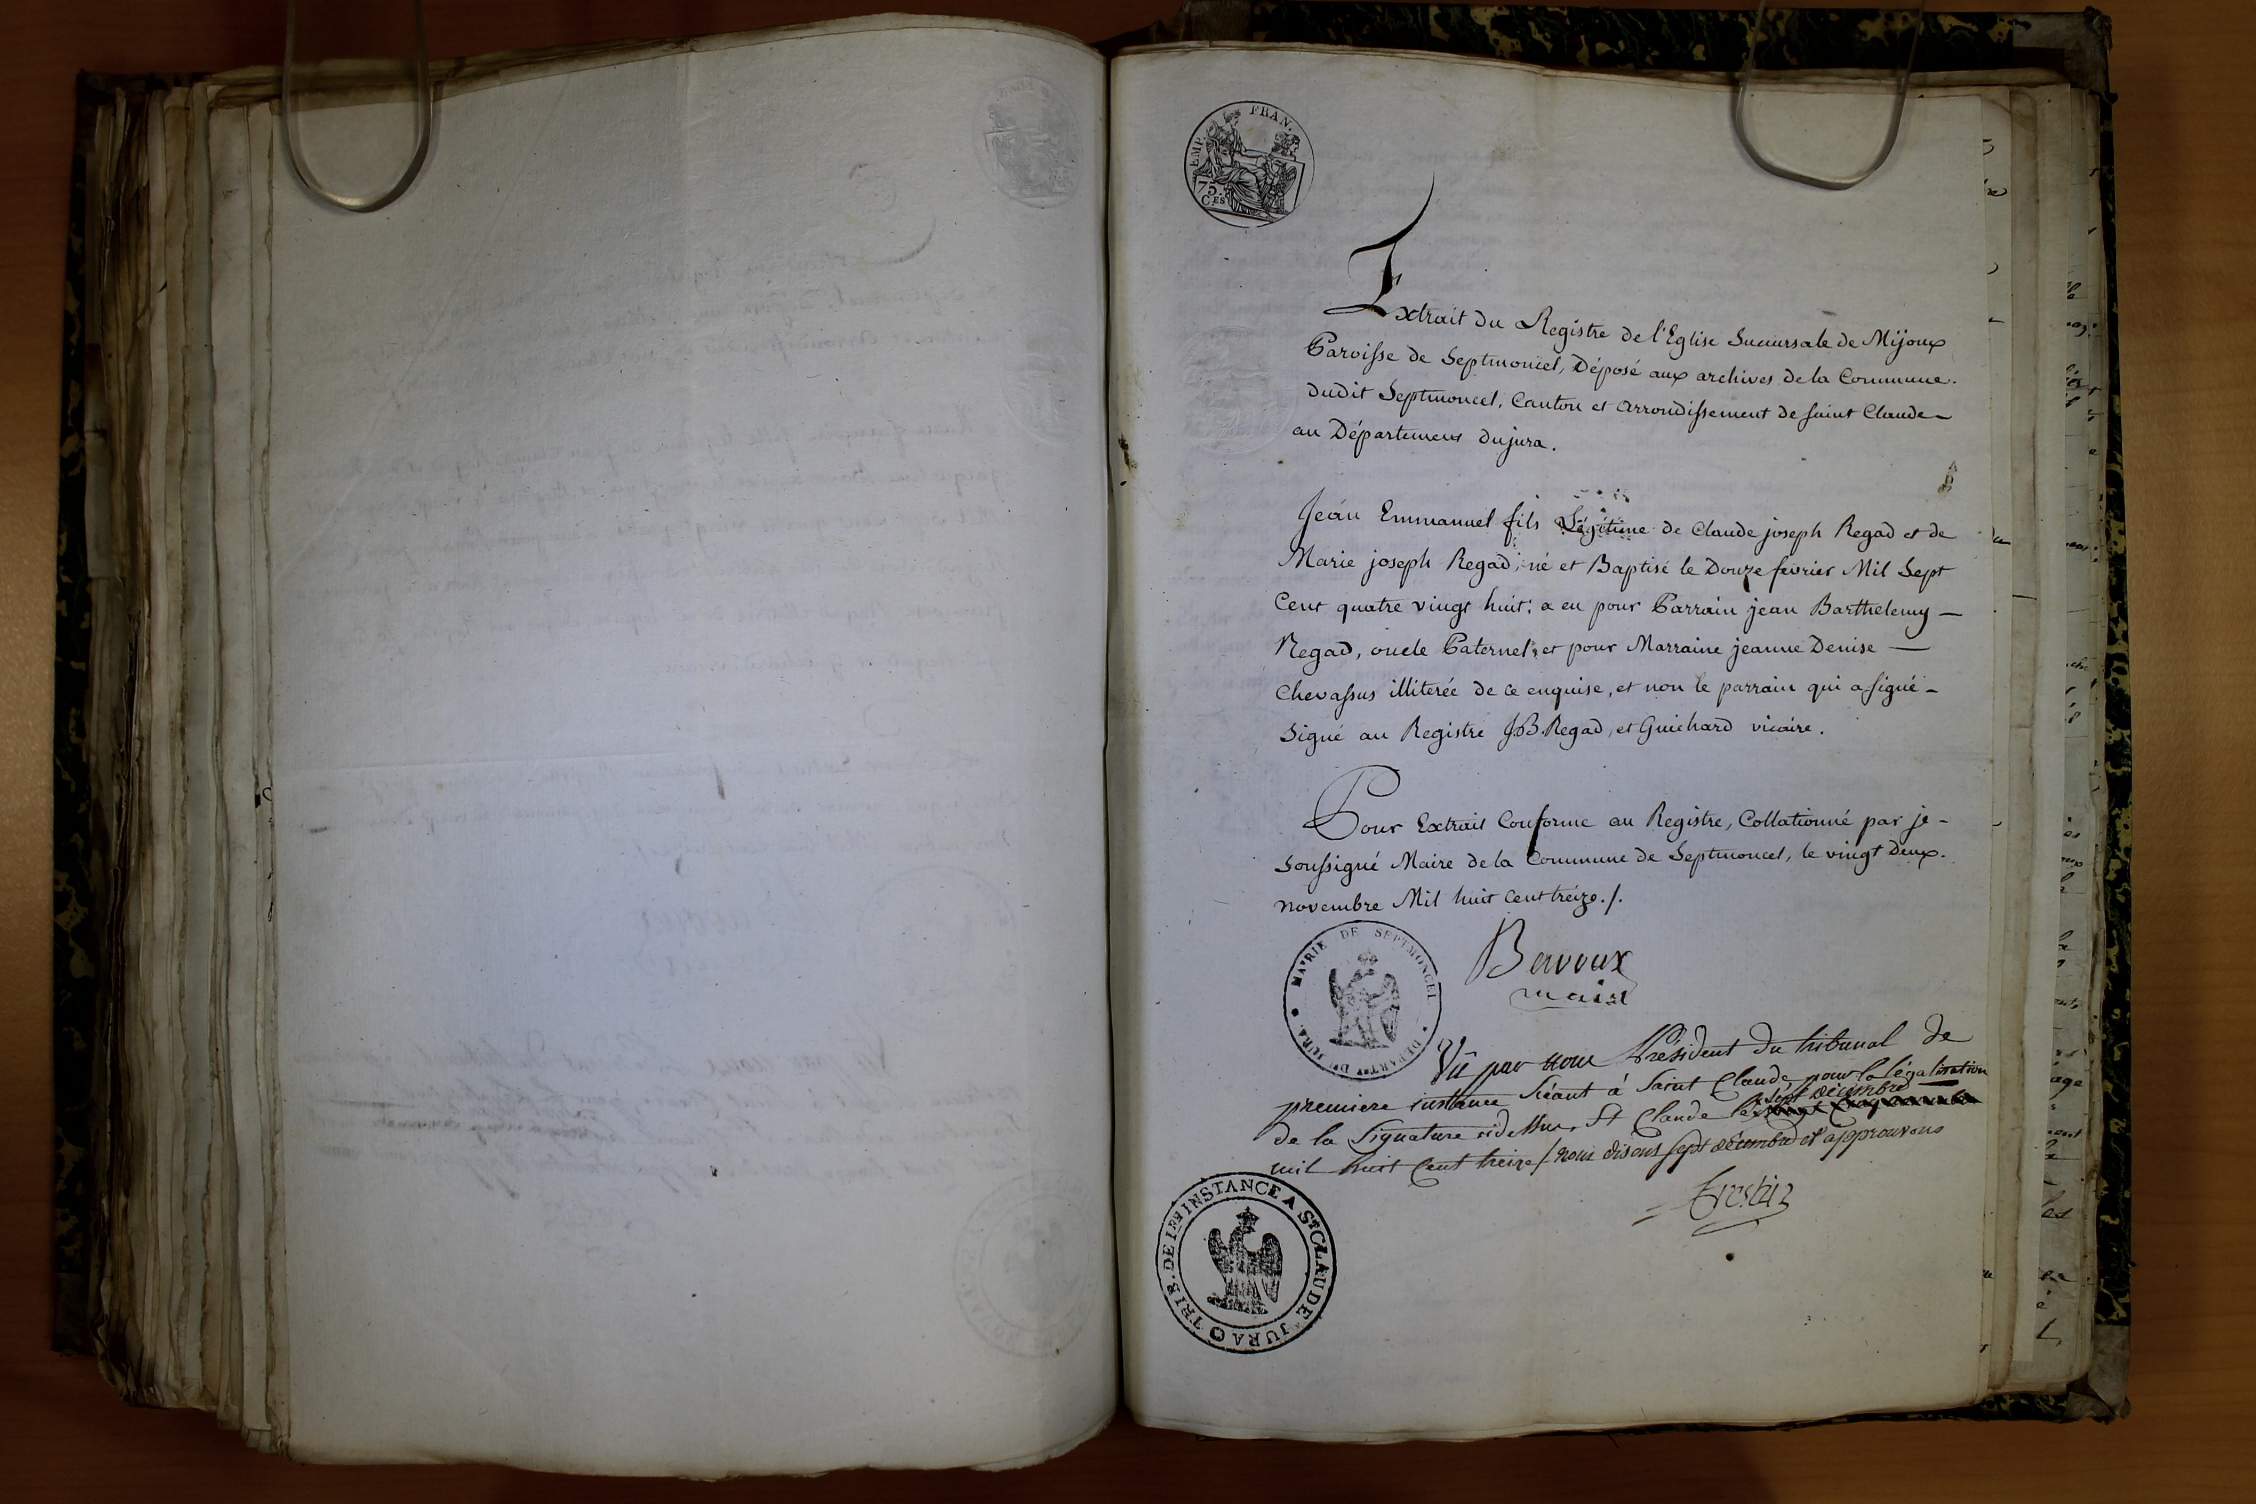 EMP. FRAN.
75.
CES
Extrait du Registre de l'Eglise Succursale de Mijoux
Paroisse de Septmoncel, Déposé aux archives de la Commune.
dudit Septmoncel, Canton et arrondissement de saint Claude
au Département du jura.
Jean Emmanuel fils Légitime de Claude joseph Regad et de
Marie joseph Regad, né et Baptisé le Douze fevrier Mil Sept
Cent quatre vingt huit; a eu pour Parrain jean Barthelemy
Regad, oncle Paternel, et pour Marraine jeanne Denise
Chevassus illiterée de ce enquise, et non le parrain qui a signé
Signé au Registre J.B. Regad, et Guichard vicaire.
Pour Extrait Conforme au Registre, Collationné par je
Soussigné Maire de la Commune de Septmoncel, le vingt Deux.
novembre Mil huit Cent treize./.
MAIRIE DE SEPTMONCEL
DEPARTNT DU JURA.
maire
Vû par nous Président du tribunal de
premiere instance Séant à Saint Claude pour la légalisation
sept décembre
de la Signature cidessus. St Claude le
mil huit Cent treize / nous disons sept décembre et approuvons
TRIB. DE 1ERE INSTANCE A ST CLAUDE JURA